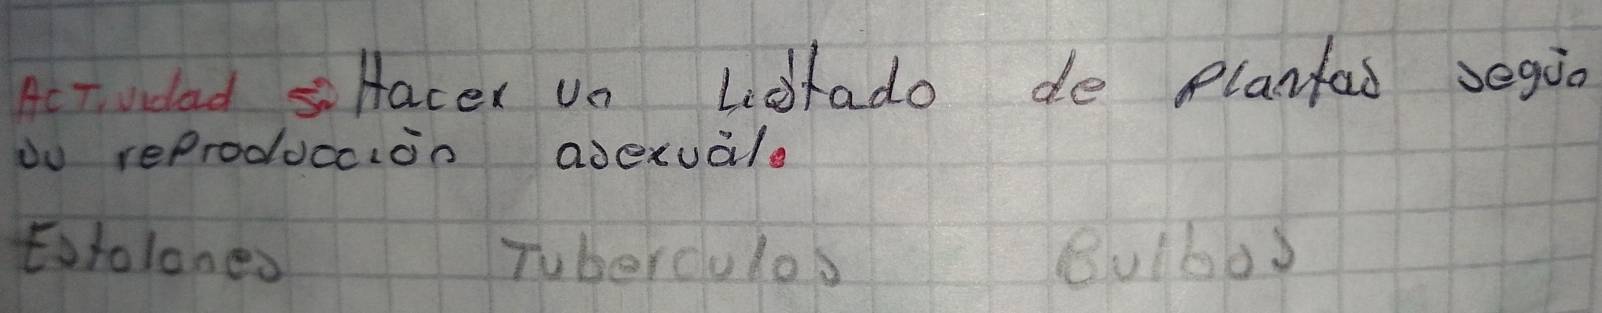 Actividad => Hacer un Listado de Plantas según
su reproducción asexuál.
Estolones Tuberculos Bulbos